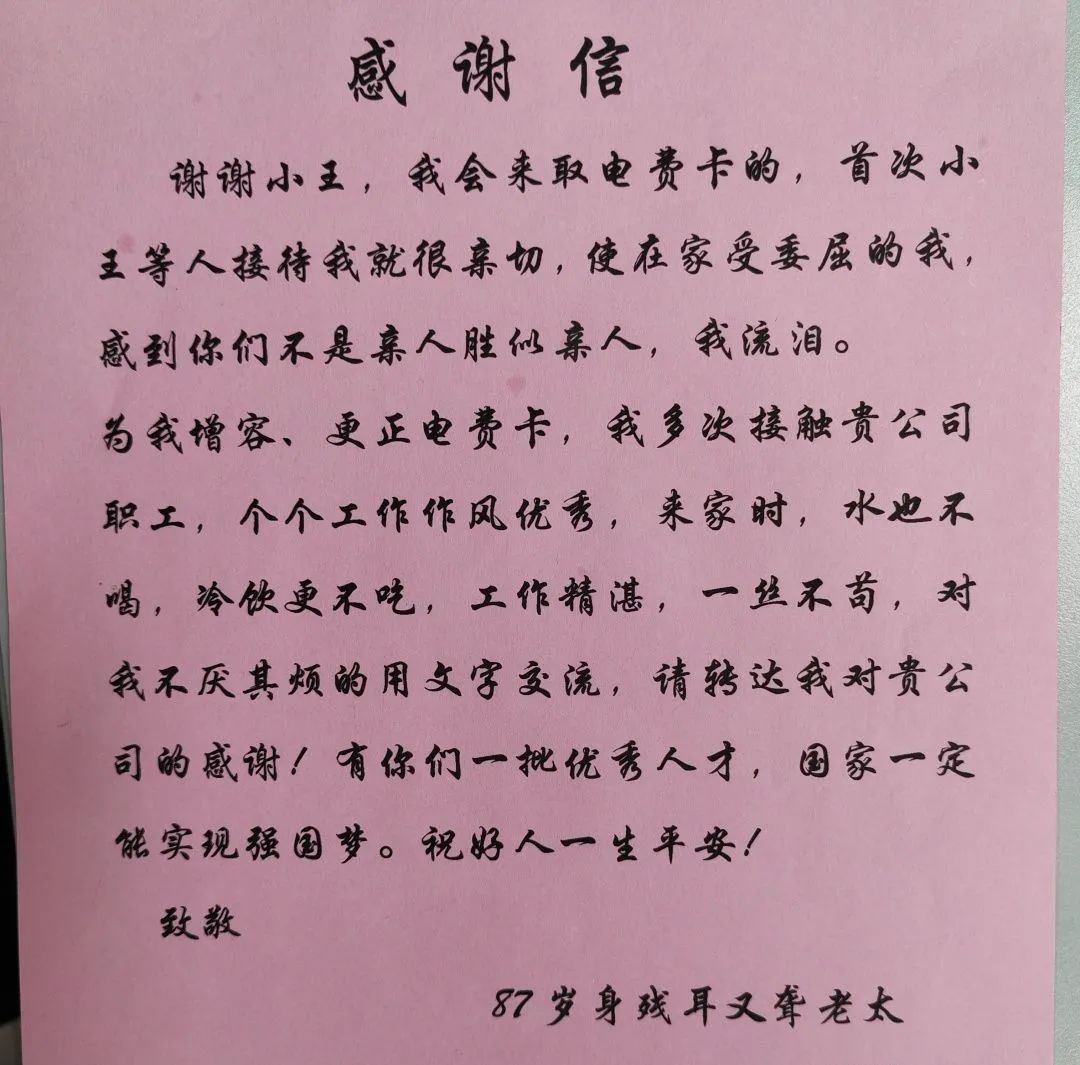 感谢信
谢谢小王，我会来取电费卡的，首次小
王等人接待我就很亲切，使在家受委屈的我，
感到你们不是亲人胜似亲人，我流泪。
为我增容、更正电费卡，我多次接触贵公司
职工，个个工作作风优秀，来家时，水也不
喝，冷饮更不吃，工作精湛，一丝不苟，对
我不厌其烦的用文字交流，请转达我对贵公
司的感谢！有你们一批优秀人才，国家一定
能实现强国梦。祝好人一生平安！
致敬
87岁身残耳又聋老太